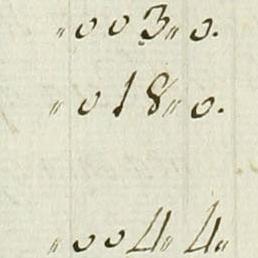 „003„0.
„018„0.
„004„4„